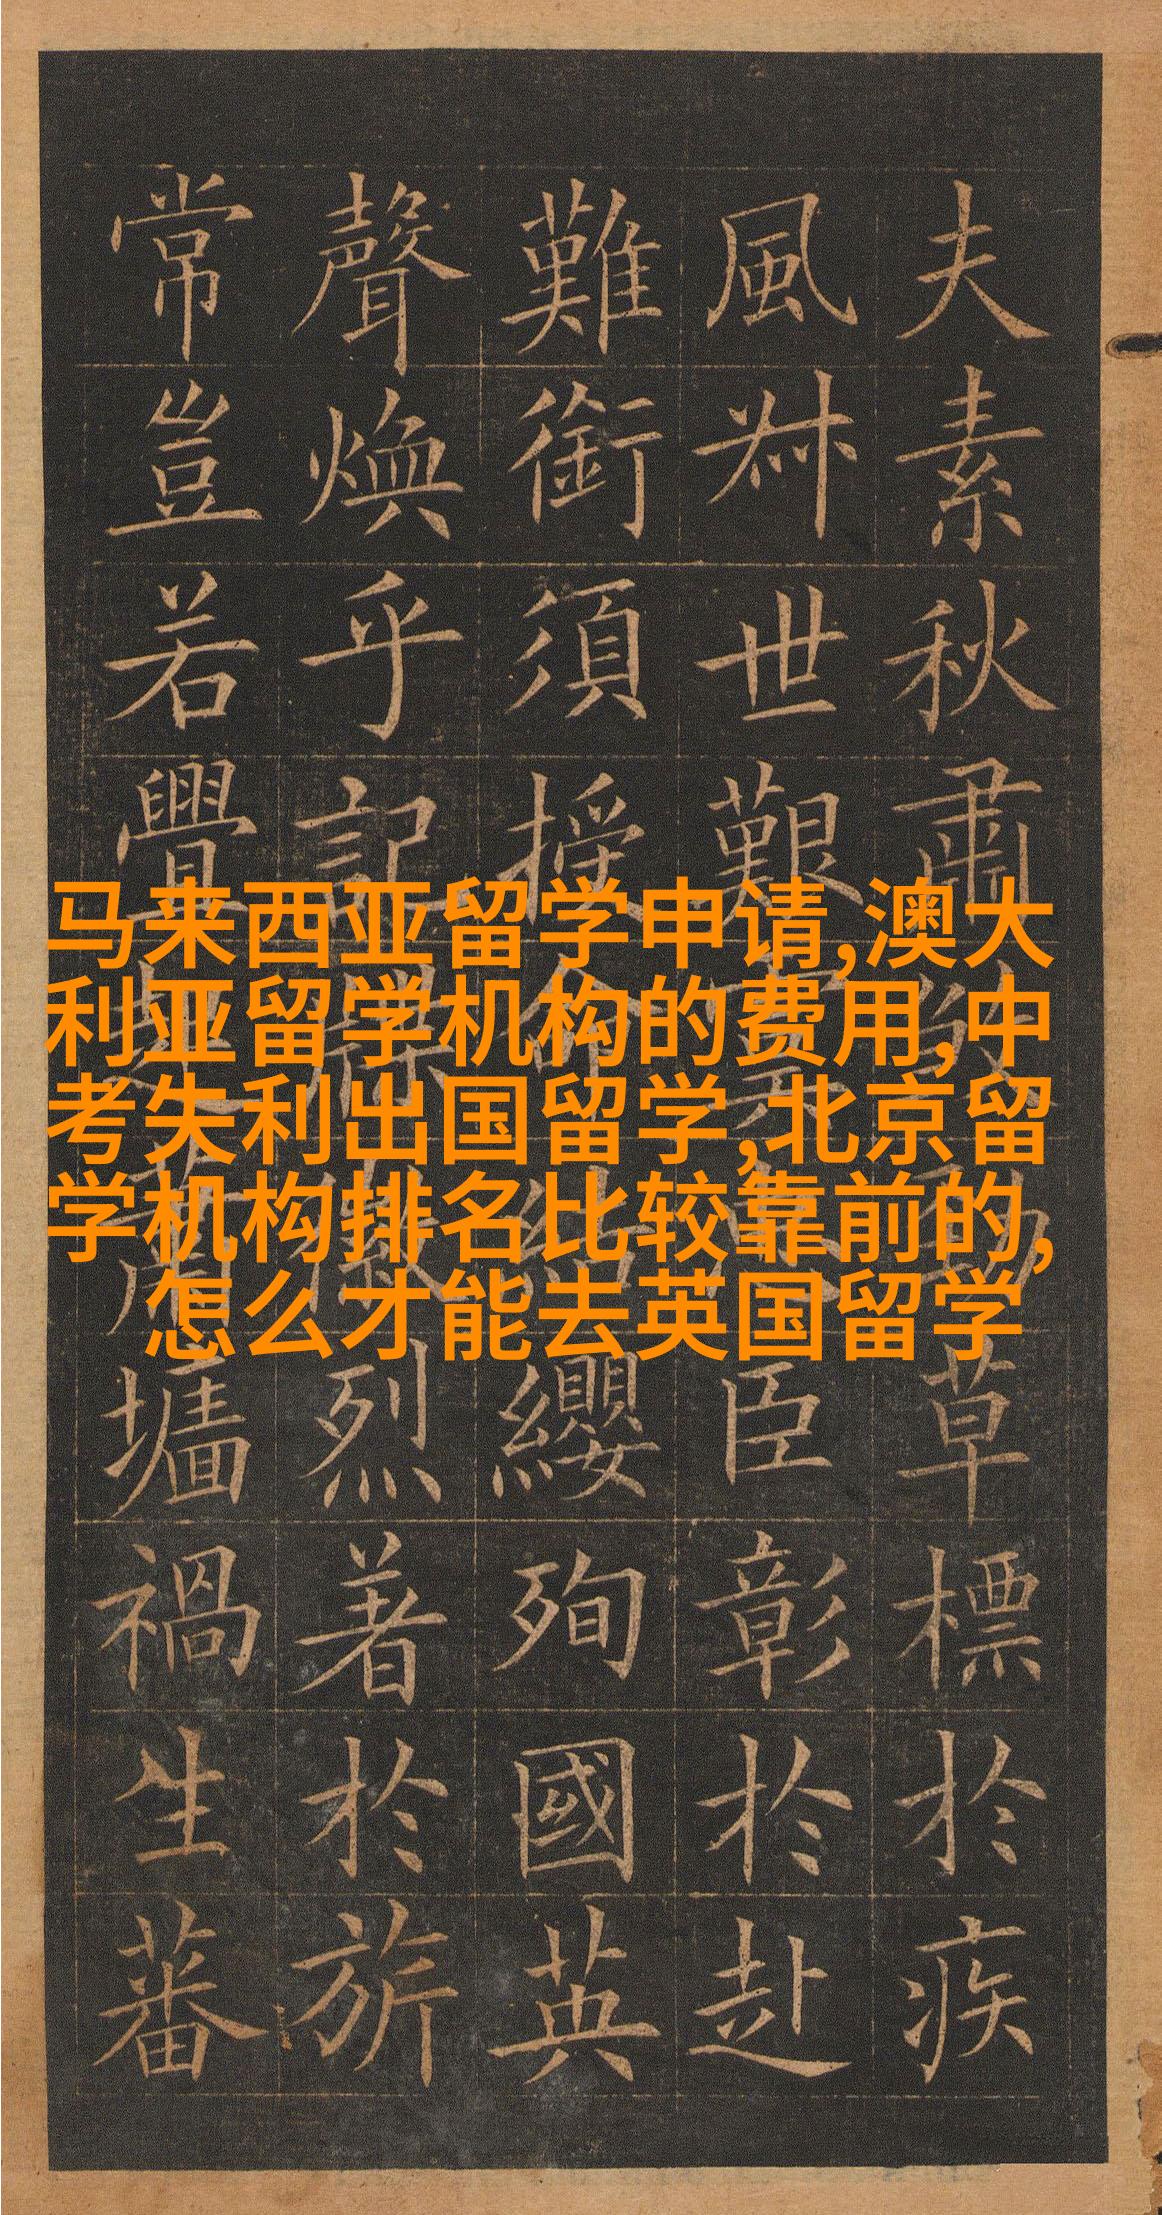 夫素秋肅草標於疾
風叔世艱臣彰於赴
難銜須授命結纓殉國英
聲煥乎記烈著於旂
常豈若釁墻禍生蕃
马来西亚留学申请,澳大
利亚留学机构的费用,中
考失利出国留学,北京留
学机构排名比较靠前的,
怎么才能去英国留学